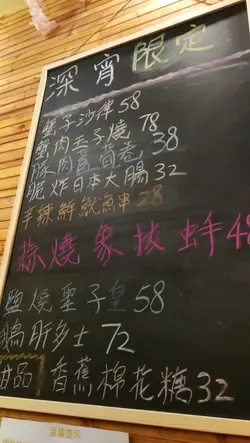 深宵限定
蟹子沙律58
蟹肉玉子燒78
豚肉露筍卷38
脆炸日本大腸32
羊辣鮮魷魚串28
蒜燒象拔蚌48
鹽燒聖子皇58
鵝肝多士72
甜品 香蕉棉花糖32
溫馨提示